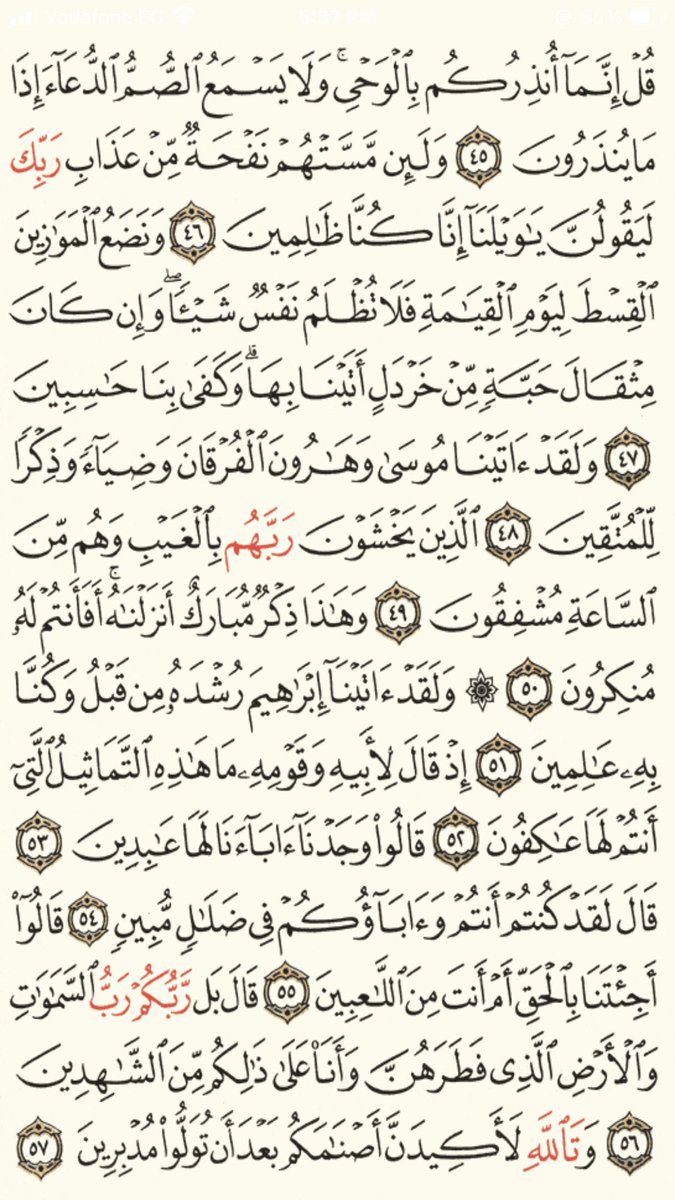 Vodafone EG 5:37 PM @ 65%
قُلۡ إِنَّمَآ أُنذِرُكُم بِٱلۡوَحۡيِۚ وَلَا يَسۡمَعُ ٱلصُّمُّ ٱلدُّعَآءَ إِذَا
مَا يُنذَرُونَ ٤٥ وَلَئِن مَّسَّتۡهُمۡ نَفۡحَةٞ مِّنۡ عَذَابِ رَبِّكَ
لَيَقُولُنَّ يَٰوَيۡلَنَآ إِنَّا كُنَّا ظَٰلِمِينَ ٤٦ وَنَضَعُ ٱلۡمَوَٰزِينَ
ٱلۡقِسۡطَ لِيَوۡمِ ٱلۡقِيَٰمَةِ فَلَا تُظۡلَمُ نَفۡسٞ شَيۡـٔٗاۖ وَإِن كَانَ
مِثۡقَالَ حَبَّةٖ مِّنۡ خَرۡدَلٍ أَتَيۡنَا بِهَاۗ وَكَفَىٰ بِنَا حَٰسِبِينَ
٤٧ وَلَقَدۡ ءَاتَيۡنَا مُوسَىٰ وَهَٰرُونَ ٱلۡفُرۡقَانَ وَضِيَآءٗ وَذِكۡرٗا
لِّلۡمُتَّقِينَ ٤٨ ٱلَّذِينَ يَخۡشَوۡنَ رَبَّهُم بِٱلۡغَيۡبِ وَهُم مِّنَ
ٱلسَّاعَةِ مُشۡفِقُونَ ٤٩ وَهَٰذَا ذِكۡرٞ مُّبَارَكٌ أَنزَلۡنَٰهُۚ أَفَأَنتُمۡ لَهُۥ
مُنكِرُونَ ٥٠ ۞ وَلَقَدۡ ءَاتَيۡنَآ إِبۡرَٰهِيمَ رُشۡدَهُۥ مِن قَبۡلُ وَكُنَّا
بِهِۦ عَٰلِمِينَ ٥١ إِذۡ قَالَ لِأَبِيهِ وَقَوۡمِهِۦ مَا هَٰذِهِ ٱلتَّمَاثِيلُ ٱلَّتِيٓ
أَنتُمۡ لَهَا عَٰكِفُونَ ٥٢ قَالُواْ وَجَدۡنَآ ءَابَآءَنَا لَهَا عَٰبِدِينَ ٥٣
قَالَ لَقَدۡ كُنتُمۡ أَنتُمۡ وَءَابَآؤُكُمۡ فِي ضَلَٰلٖ مُّبِينٖ ٥٤ قَالُوٓاْ
أَجِئۡتَنَا بِٱلۡحَقِّ أَمۡ أَنتَ مِنَ ٱللَّٰعِبِينَ ٥٥ قَالَ بَل رَّبُّكُمۡ رَبُّ ٱلسَّمَٰوَٰتِ
وَٱلۡأَرۡضِ ٱلَّذِي فَطَرَهُنَّ وَأَنَا۠ عَلَىٰ ذَٰلِكُم مِّنَ ٱلشَّٰهِدِينَ
٥٦ وَتَٱللَّهِ لَأَكِيدَنَّ أَصۡنَٰمَكُم بَعۡدَ أَن تُوَلُّواْ مُدۡبِرِينَ ٥٧